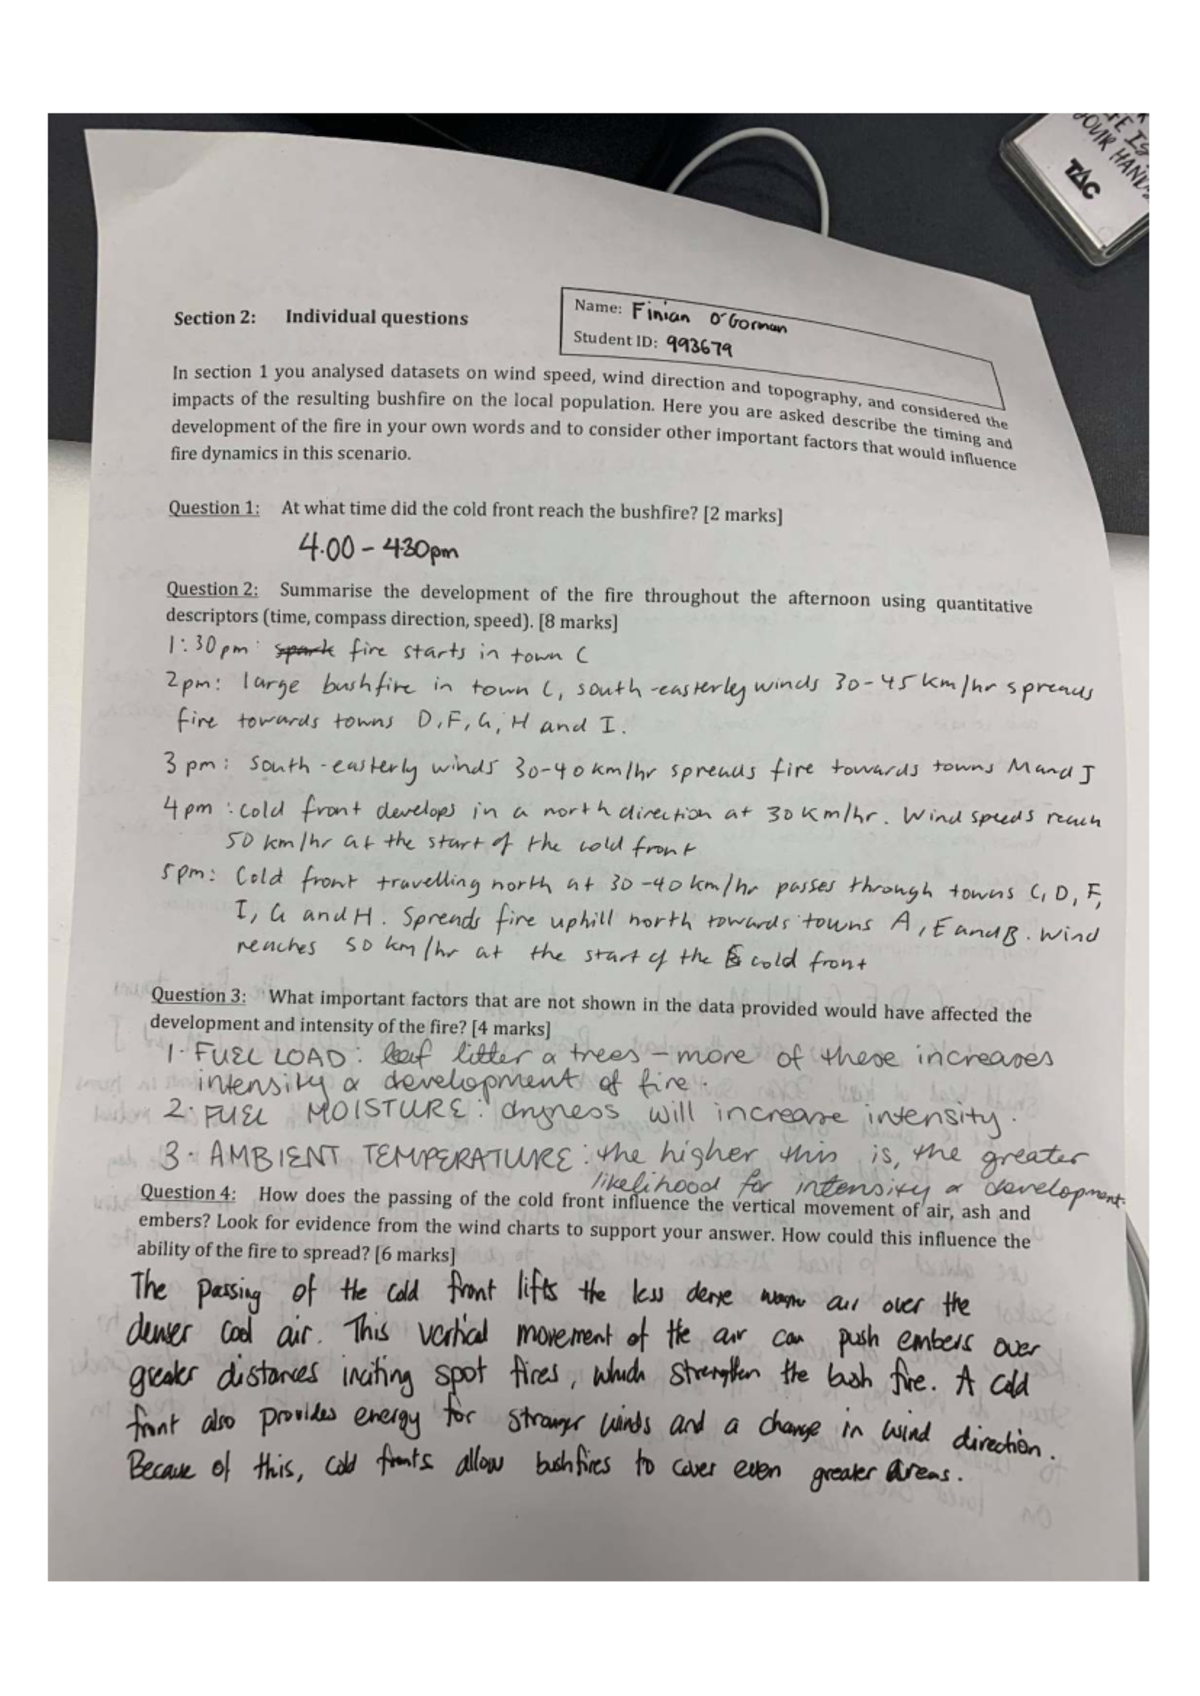 FE IS
YOUR HANDS
TAC
Section 2: Individual questions
Name: Finian O'Gorman
Student ID: 993679
In section 1 you analysed datasets on wind speed, wind direction and topography, and considered the
impacts of the resulting bushfire on the local population. Here you are asked describe the timing and
development of the fire in your own words and to consider other important factors that would influence
fire dynamics in this scenario.
Question 1: At what time did the cold front reach the bushfire? [2 marks]
4.00 - 4.30pm
Question 2: Summarise the development of the fire throughout the afternoon using quantitative
descriptors (time, compass direction, speed). [8 marks]
1:30pm: spark fire starts in town C
2pm: large bushfire in town C, south-easterley winds 30-45 km/hr spreads
fire towards towns D, F, G, H and I.
3pm: south-easterly winds 30-40km/hr spreads fire towards towns M and J
4pm: cold front develops in a north direction at 30 km/hr. Wind speeds reach
50 km/hr at the start of the cold front
5pm: Cold front travelling north at 30-40km/hr passes through towns C, D, F,
I, G and H. Spreads fire uphill north towards towns A, E and B. Wind
reaches 50 km/hr at the start of the cold front
Question 3: What important factors that are not shown in the data provided would have affected the
development and intensity of the fire? [4 marks]
1. FUEL LOAD: leaf litter & trees - more of these increases
intensity & development of fire.
2. FUEL MOISTURE: dryness will increase intensity.
3. AMBIENT TEMPERATURE: the higher this is, the greater
likelihood for intensity & development.
Question 4: How does the passing of the cold front influence the vertical movement of air, ash and
embers? Look for evidence from the wind charts to support your answer. How could this influence the
ability of the fire to spread? [6 marks]
The passing of the cold front lifts the less dense warm air over the
denser cool air. This vertical movement of the air can push embers over
greater distances inciting spot fires, which strengthen the bush fire. A cold
front also provides energy for stronger winds and a change in wind direction.
Because of this, cold fronts allow bushfires to cover even greater areas.